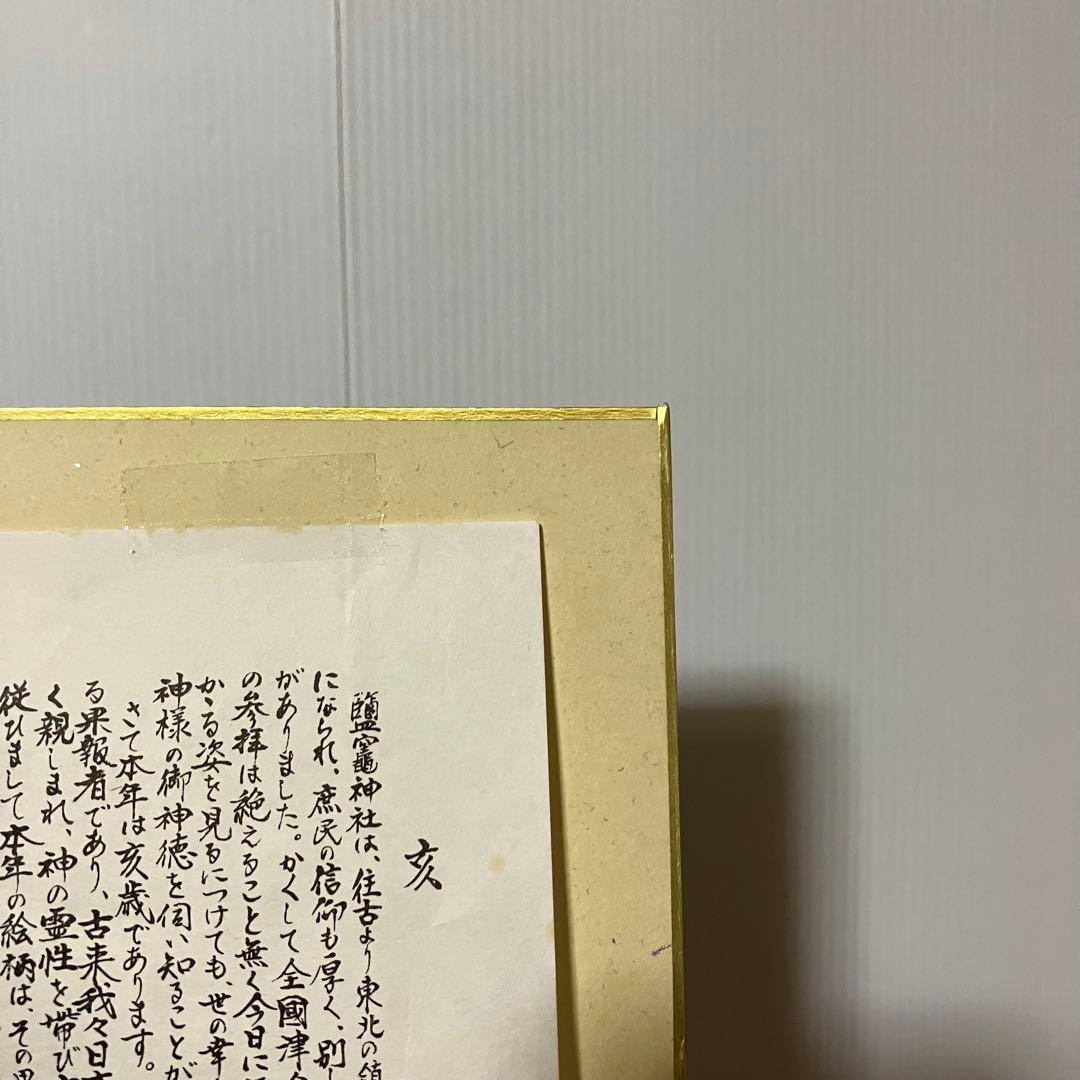 亥
鹽竈神社は、往古より東北の鎮
になられ、庶民の信仰も厚く、別し
がありました。かくして全國津々
の参拝は絶えること無く今日に
かゝる姿を見るにつけても、世の幸
神様の御神徳を伺い知ることが
さて本年は亥歳であります。
る果報者であり、古来我々日
く親しまれ、神の霊性を帯び
従ひまして本年の絵柄は、その